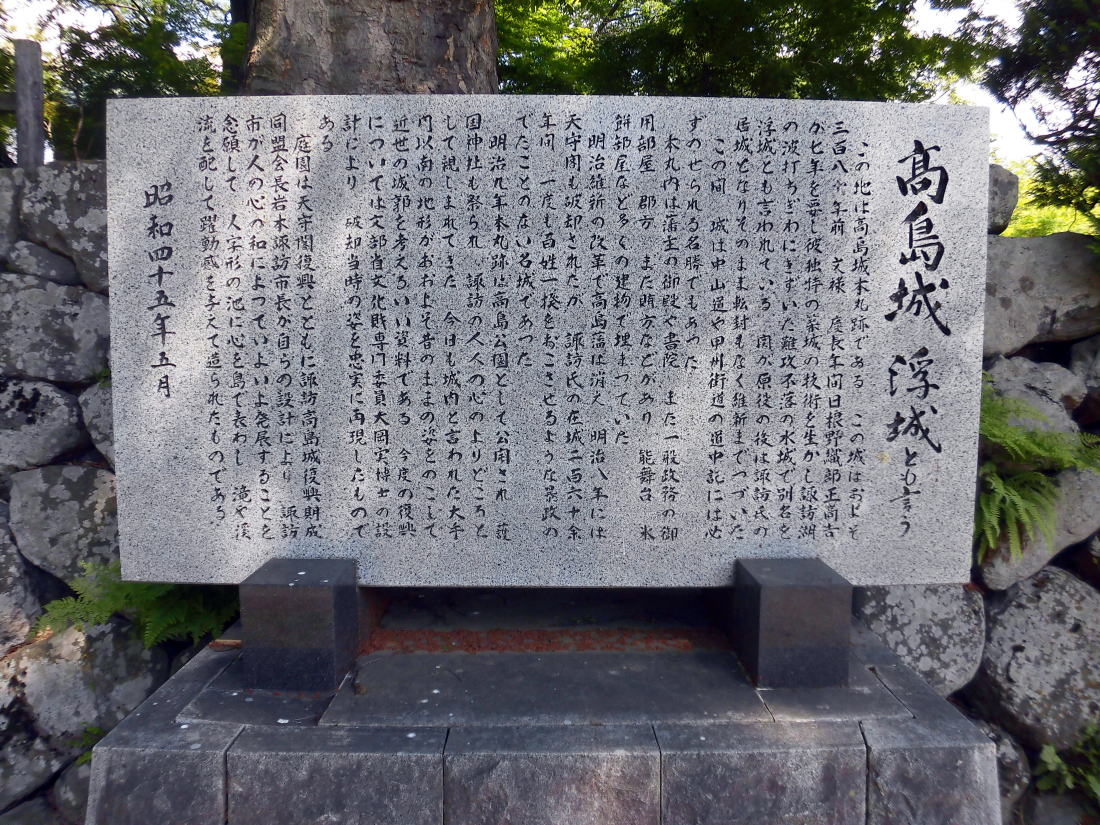 高島城 浮城とも言う
この地は高島城本丸跡である この城はおよそ
三百八十年前 文禄 慶長年間日根野織部正高吉
が七年を要し彼独特の築城の技術を生かし諏訪湖
の波打ちぎわにきずいた難攻不落の水城で別名を
浮城とも言われている 関が原役の後は諏訪氏の
居城となりそのまま転封もなく維新までつづいた
この間 城は中山道や甲州街道の道中記には必
ずのせられる名勝でもあった
本丸内は藩主の御殿や書院 また一般政務の御
用部屋 郡方 また時方などがあり 能舞台 氷
餅部屋など多くの建物で埋まっていた
明治維新の改革で高島藩は消え 明治八年には
天守閣も破却されたが 諏訪氏の在城二百六十余
年間 一度も百姓一揆をおこさせるような悪政の
でたことのない名城であった
明治九年本丸跡は高島公園として公開され 護
国神社も祭られ 諏訪の人人の心のよりどころと
して親しまれてきた 今日も城内と言われた大手
門以南の地形がおおよそ昔のままの姿をのこして
近世の城郭を考えるいい資料である 今度の復興
については文部省文化財専門委員大岡実博士の設
計により 破却当時の姿を忠実に再現したもので
ある
庭園は天守閣復興とともに諏訪高島城復興期成
同盟会長岩本諏訪市長が自らの設計により 諏訪
市が人の心の和によっていよいよ発展することを
念願して 人字形の池に心を島で表わし 滝や渓
流を配して躍動感を与えて造られたものである
昭和四十五年五月